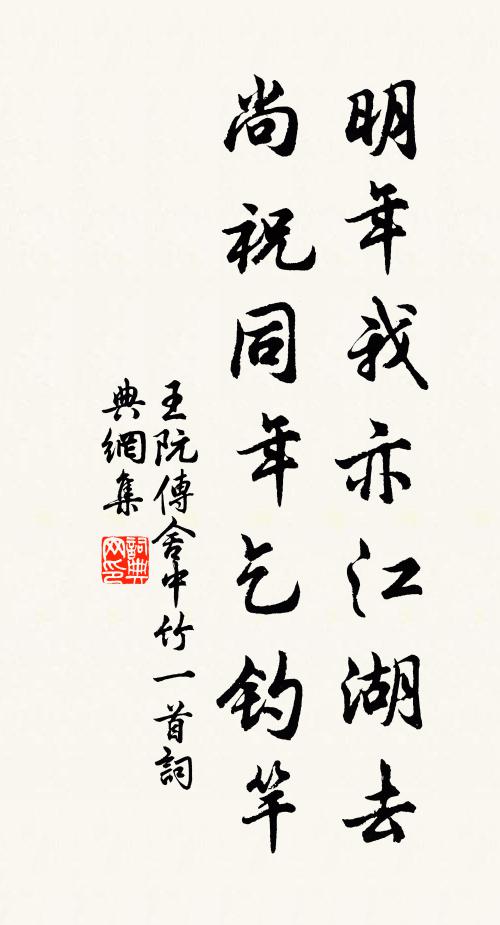 明年我亦江湖去
尚祝同年乞钓竿
王阮傳舍中竹一首詞
典網集
詞典
网印